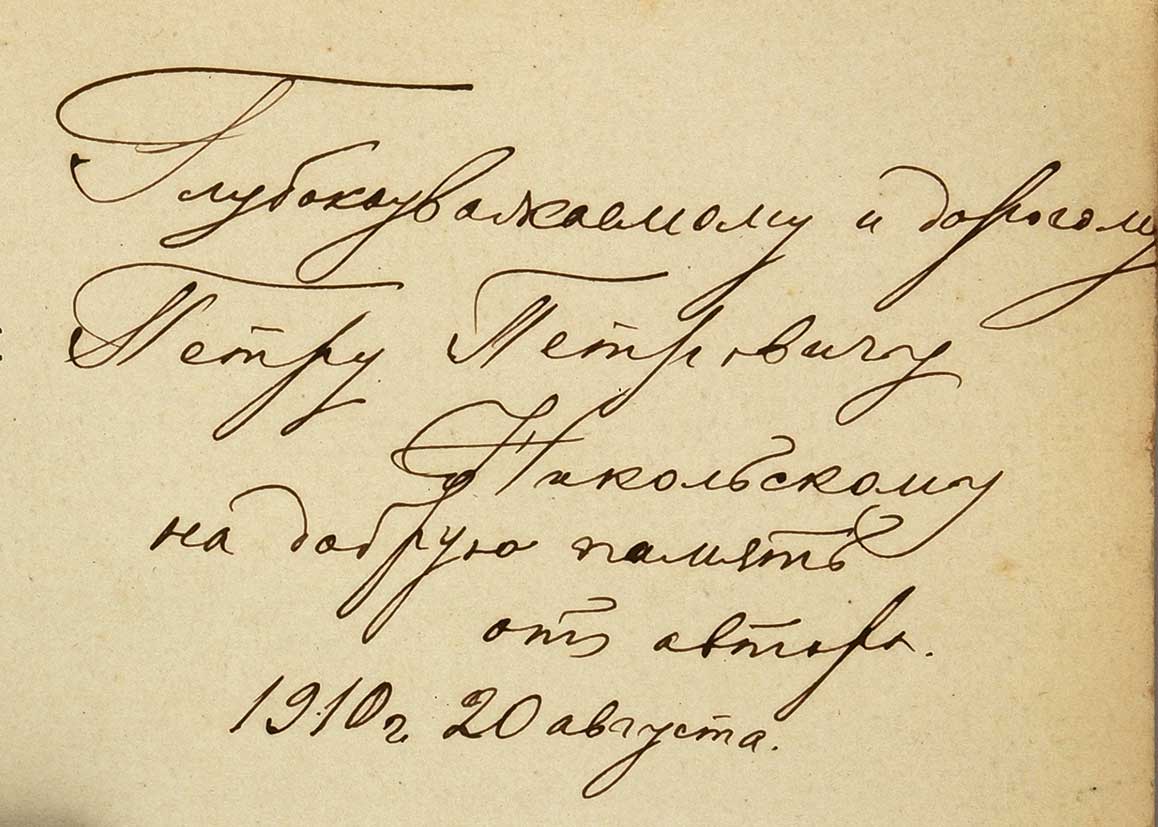 Глубокоуважаемому и дорогому
Петру Петровичу
Никольскому
на добрую память
отъ автора.
1910 г. 20 августа.